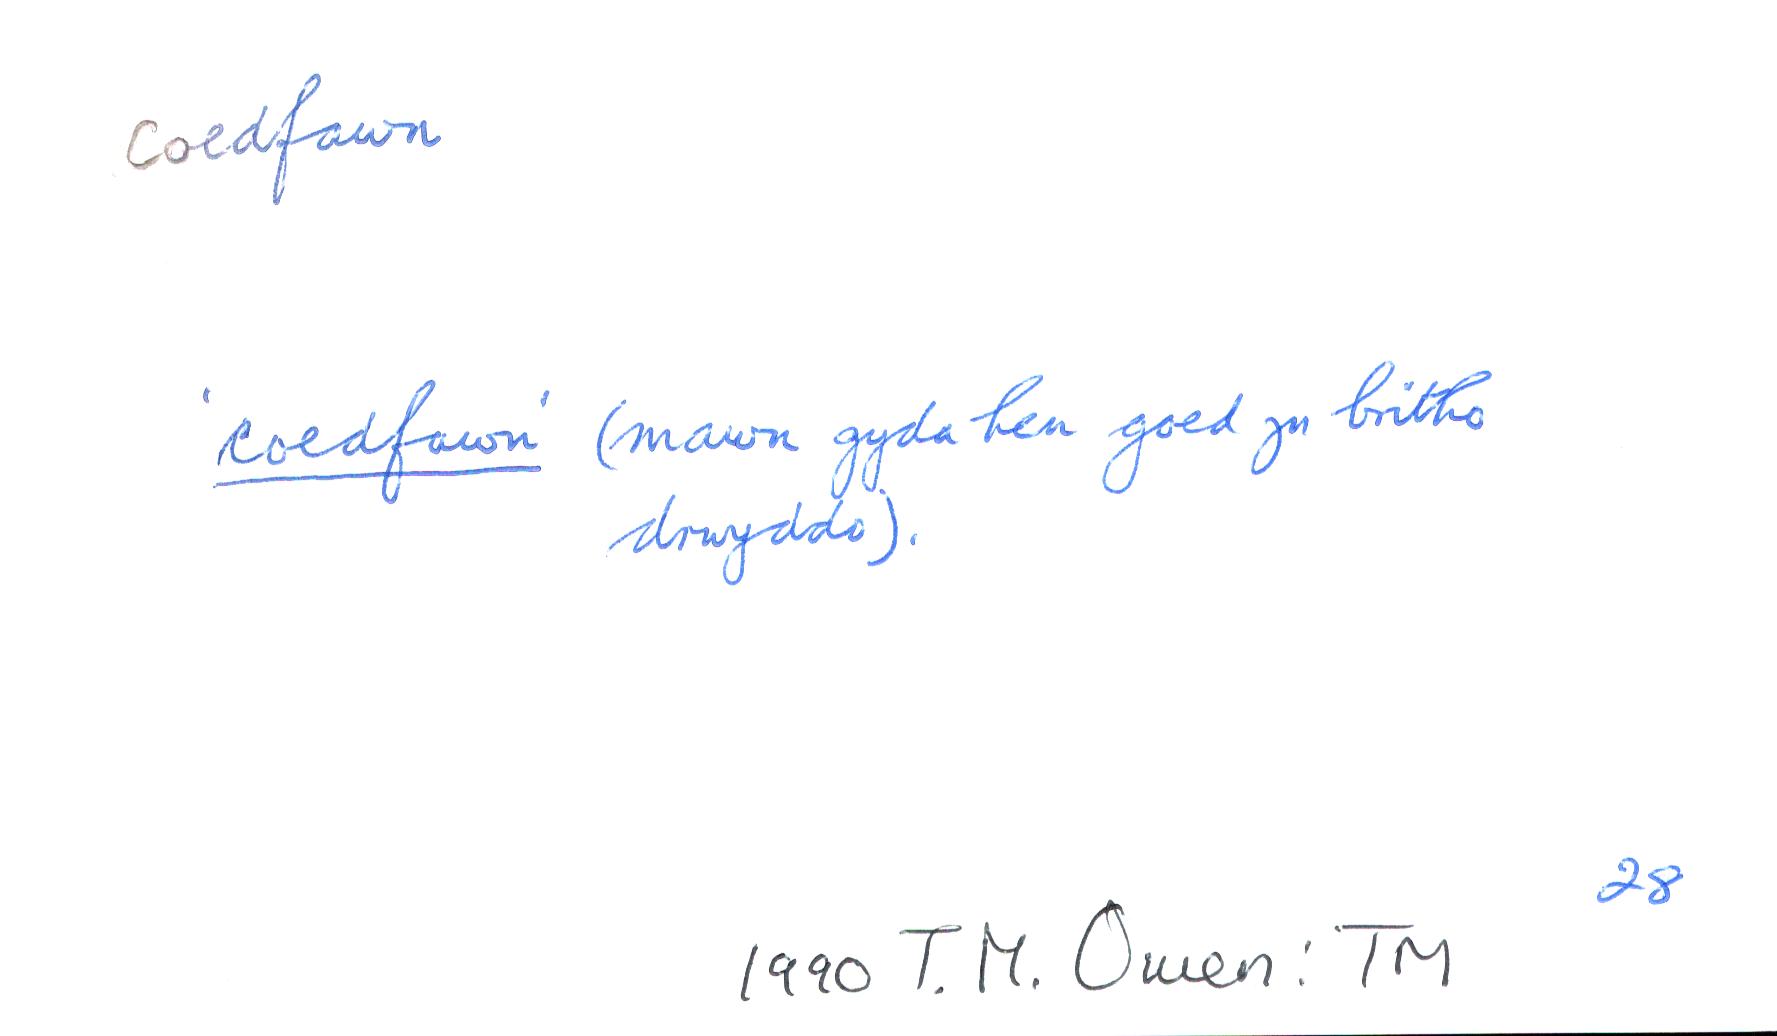 coedfawn
'coedfawn' (mawn gyda hen goed yn britho
drwyddo).
28
1990 T.M. Owen: TM